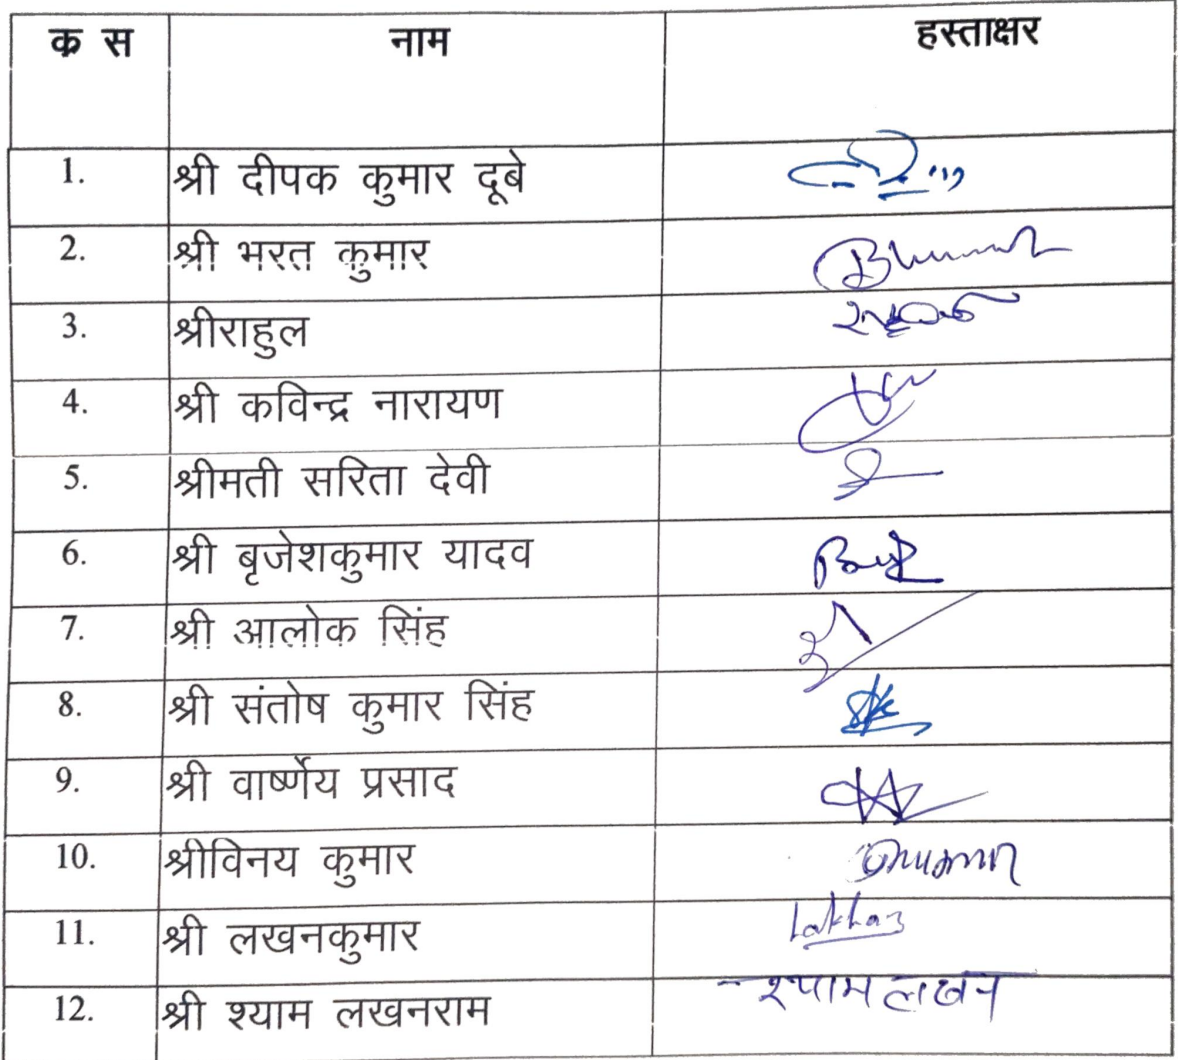 क स नाम हस्ताक्षर
1. श्री दीपक कुमार दूबे
2. श्री भरत कुमार
3. श्रीराहुल
4. श्री कविन्द्र नारायण
5. श्रीमती सरिता देवी
6. श्री बृजेशकुमार यादव
7. श्री आलोक सिंह
8. श्री संतोष कुमार सिंह
9. श्री वार्ष्णेय प्रसाद
10. श्रीविनय कुमार
11. श्री लखनकुमार
12. श्री श्याम लखनराम श्याम लखन